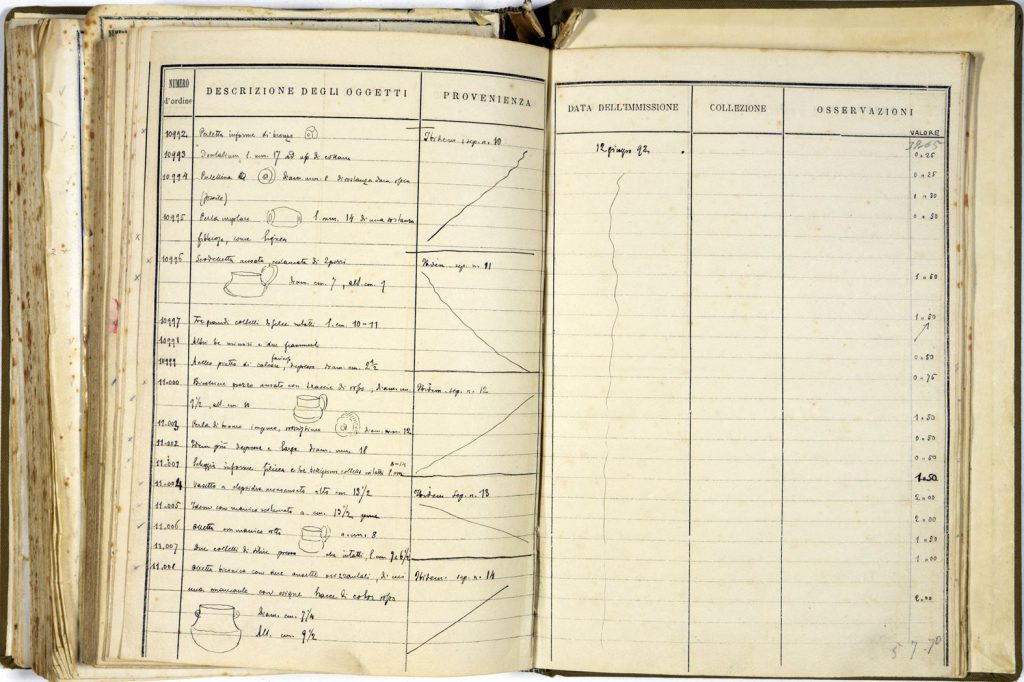 NUMERO d'ordine
DESCRIZIONE DEGLI OGGETTI
PROVENIENZA
DATA DELL'IMMISSIONE
COLLEZIONE
OSSERVAZIONI
VALORE
10992 Perletta informe di bronzo
Ibidem sep. n. 10
12 giugno 92
10993 Dentalium, l. mm. 17 ad up di collana
0.25
10994 diam. mm. 8 di sostanza dura opaca
0.25
(fossile)
10995 Perla l. mm. 14 di una sostanza
0.50
fibrosa, come lignea
10996 Scodelletta ansata, di 2 pezzi
Ibidem. sep. n. 11
diam. cm. 7, alt. cm. 9
1.50
10997 Tre grandi coltelli di selce intatti l. cm. 10-11
1.50
10998 Altri tre minori e due frammenti
10999 Anello pietra di calcare, depresso diam. cm. 2 1/2
0.50
11.000 Bicchiere ansato con tracce di rosso, diam. cm.
Ibidem. sep. n. 12
0.75
9 1/2, alt. cm. 10
11.003 Perla di bronzo diam. mm. 12
1.50
11.002 Idem più depressa e larga diam. mm. 18
0.50
11.001 Scheggia informe silicea e tre coltelli intatti
0.50
11.004 Vasetto a clepsidra alto cm. 13 1/2
Ibidem sep. n. 13
1.50
2.00
11.005 Idem con manico a. cm. 13 1/2
2.00
11.006 Olletta con manico rotto a. cm. 8
1.50
11.007 Due coltelli di selce intatti, l. cm. 7 e 6 1/2
1.00
11.008 Olletta biconica con due ansette orizzontali, di cui
Ibidem. sep. n. 14
una mancante con esigue tracce di color rosso
2.00
Diam. cm. 7 1/4
Alt. cm. 9 1/2
5-7-70